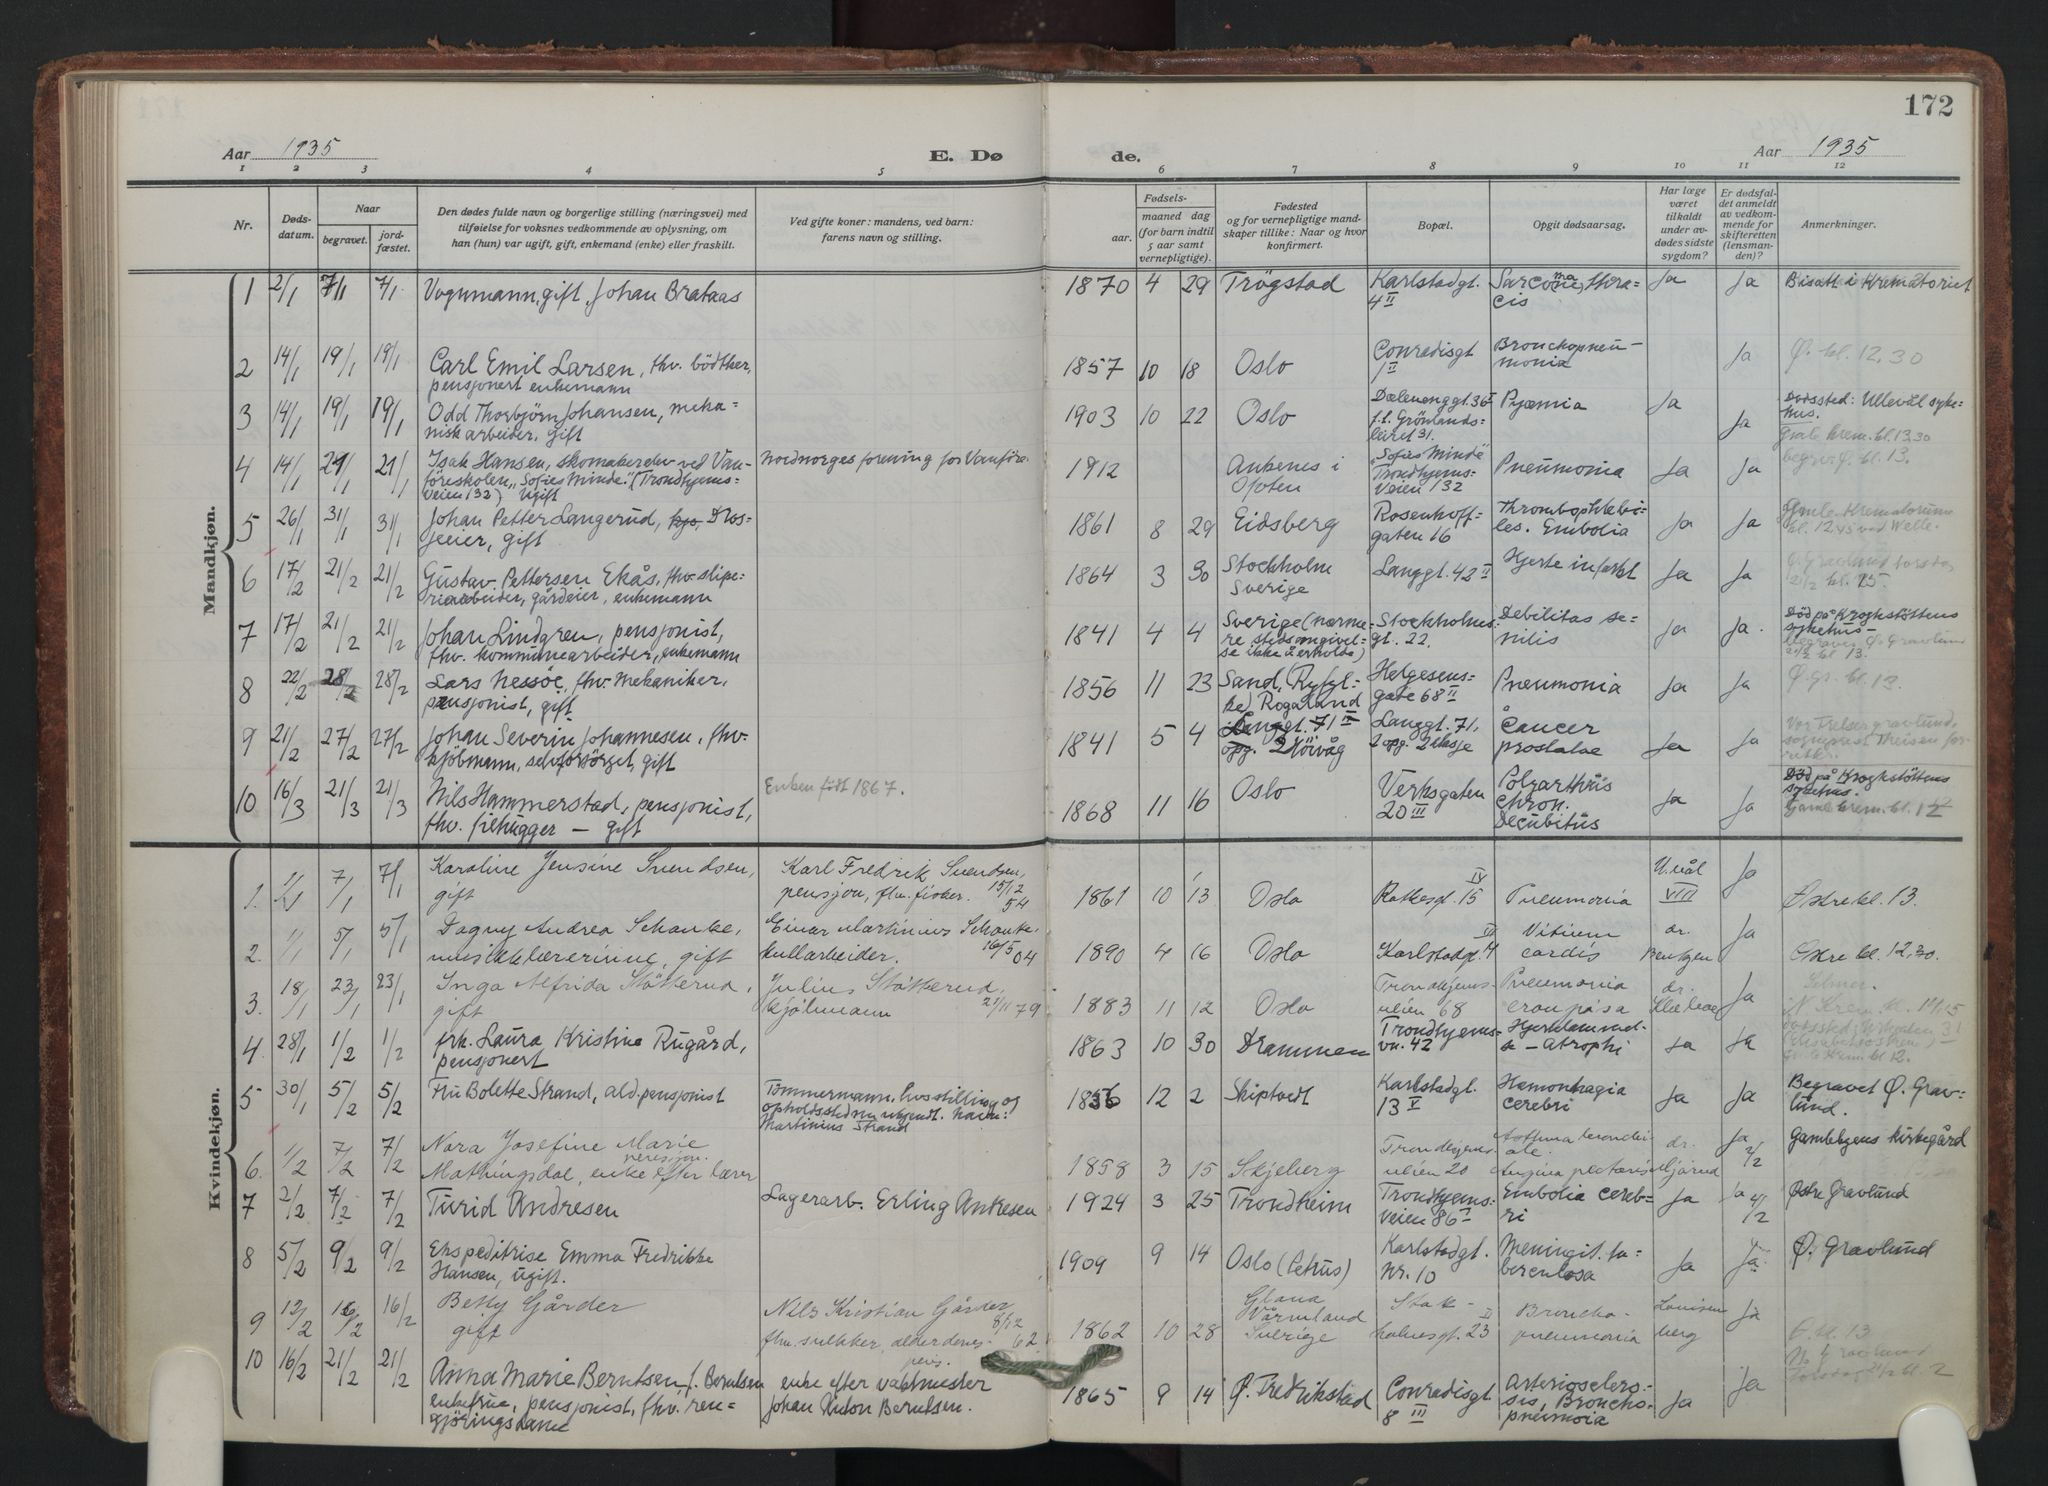 172
Aar 1935 E. Dø de. Aar 1935
1 2 3 4 5 6 7 8 9 10 11 12
Nr.
Døds-
datum.
Naar
begravet.
jord-
fæstet.
Den dødes fulde navn og borgerlige stilling (næringsvei) med
tilføielse for voksnes vedkommende av oplysning, om
han (hun) var ugift, gift, enkemand (enke) eller fraskilt.
Ved gifte koner: mandens, ved barn:
farens navn og stilling.
Fødsels-
aar.
maaned dag
(for barn indtil
5 aar samt
vernepligtige).
Fødested
og for vernepligtige mand-
skaper tillike: Naar og hvor
konfirmert.
Bopæl.
Opgit dødsaarsag.
Har læge
været
tilkaldt
under av-
dødes sidste
sygdom?
Er dødsfal-
det anmeldt
av vedkom-
mende for
skifteretten
(lensman-
den)?
Anmerkninger.
Mandkjøn.
1 2/1 7/1 7/1 Vognmann, gift, Johan Brataas
1870 4 29 Trögstad Karlstadgt. 4 II
thora-
cis
Ja Ja Bisatt i Krematoriet
2 14/1 19/1 19/1 Carl Emil Larsen, fhv. bödtker,
pensjonert enkemann
1857 10 18 Oslo Conradisgt 1 II
Bronchopneu-
monia
Ja Ø. kl. 12.30
3 14/1 19/1 19/1 Odd Thorbjörn Johansen, meka-
nisk arbeider, gift
1903 10 22 Oslo Dælenenggt. 36 I
f.t. Grönlands-
leiret 31.
Pyæmia Ja Ja
Dødssted: Ullevål syke-
hus.
Gmle krem. kl. 13.30
4 14/1 21/1 21/1 Isak Hansen, skomakerelev ved Van-
föreskolen "Sofies Minde" (Trondhjems-
veien 132) Ugift
Nordnorges forening for Vanföre
1912 Ankenes i
Ofoten
"Sofies Minde"
Trondhjems-
veien 132
Pneumonia Ja Ja begrv. Ø. kl. 13.
5 26/1 31/1 31/1 Johan Petter Langerud, Dros-
jeeier, gift
1861 8 29 Eidsberg Rosenhoff-
gaten 16
Thrombophlebi-
tes. Embolia
Ja Ja Gmle Krematorium
kl. 12.45 ved Welle.
6 17/2 21/2 21/2 Gustav Pettersen Ekås, fhv. slipe-
riarbeider, gårdeier, enkemann
1864 3 30 Stockholm
Sverige
Langgt. 42 II Hjerteinfarkt Ja Ja
Ø. Gravlund torsdag
21/2 kl. 15.
7 17/2 21/2 21/2 Johan Lindgren, pensjonist,
fhv. kommunearbeider, enkemann
1841 4 4 Sverige (nærme-
re stedsangivel-
se ikke å erholde)
Stockholms-
gt. 22.
Debilitas se-
nilis
Ja Ja.
Död på Krogkstöttens
sykehus -
begraves Ø. Gravlund
21/2 kl 13.
8 22/2 28/2 28/2 Lars Nessöe, fhv. mekaniker,
pensjonist, gift
1856 11 23 Sand, (Ryfyl-
ke) Rogaland
Helgesens-
gate 68 II
Pneumonia Ja Ja Ø. Gr. kl. 13.
9 21/2 27/2 27/2 Johan Severin Johannesen, fhv.
kjöbmann, selvforsörget, gift
1841 5 4 Langgt. 71 III
opg. 2 Höivåg
Langgt. 71,
2 opg. 2 etasje
Cancer
prostatae
Ja Ja
Vor Frelser gravlund,
sogneprest Theisen for-
retter.
10 16/3 21/3 21/3 Nils Hammerstad, pensjonist,
fhv. filhugger - gift
Enken født 1867.
1868 11 16 Oslo Verksgaten
20 III
Polyarthris
chron.
Decubitus
Ja Ja
Død på Krogkstöttens
sykehus.
Gamle krem. kl. 12
Kvindekjøn.
1. 1/1 7/1 7/1 Karoline Jensine Svendsen,
gift
Karl Fredrik Svendsen,
pensjon., fhv. fisker. 15/12 54
1861 10 13 Oslo Ratkesgt. 15 IV Pneumonia
U.vål
VIII
Ja Østre kl. 13.
2. 1/1 5/1 5/1 Dagny Andrea Schanke,
musikklærerinne, gift
Einar Martinius Schanke,
kullarbeider. 16/5 04
1890 4 16 Oslo Karlstadgt. 4 Vitium
cordis
dr. Bentzen
Ja Østre kl. 12,30.
3. 18/1 23/1 23/1 Inga Alfrida Stötterud,
gift
Julius Stötterud,
kjölmann 21/11 79
1883 11 12 Oslo Trondhjems-
veien 68
Pneumonia
crouposa
dr.
Ja
N. Krem. kl. 14.15
4. 28/1 1/2 1/2 frk. Laura Kristine Rugård,
pensjonert
1863 10 30 Drammen Trondhjems-
vn. 42
- atrophi
Ja Ja
Gmle Krem. kl 12.
5 30/1 5/2 5/2 Fru Bolette Strand, ald.pensjonist
Tömmermann, livsstilling og
opholdssted nu ukjendt. Navn:
Martinius Strand
1856 12 2 Skiptvedt Karlstadgt.
13 I
Hæmorrhagia
cerebri
Ja Ja Begravet Ø. Grav-
lund.
6. 1/2 7/2 7/2 Nora Josefine Marie
Mathingsdal, enke efter lærer
pensjon.
1858 3 15 Skjeberg Trondhjems-
veien 20
Asthma bronchi-
ale.
Angina pectoris
dr. Mjörud
Ja 2/2 Gamlebyens kirkegård
7 2/2 7/2 7/2 Turid Andresen
Lagerarb. Erling Andresen
1924 3 25 Trondheim Trondhjems-
veien 86 I
Embolia cereb-
ri
Ja Ja 4/2 Østre Gravlund
8 5/2 9/2 9/2 Ekspeditrise Emma Fredrikke
Hansen, ugift.
1909 9 14 Oslo (Petrus) Karlstadgt.
Nr. 10
Meningit. tu-
berculosa
Ja Ja Ø. Gravlund
9 12/2 16/2 16/2 Betty Gårder
gift
Nils Kristian Gårder 8/12 62
fhv. snekker, alderdoms-
pens.
1862 10 28 Glava
Värmland
Sverige
Stok-
holmsgt. 23 II
Broncho-
pneumonia
Louisen
berg
Ja Ø. kl. 13
10 16/2 21/2 21/2 Anna Marie Berntsen, f. Berntsen
enkefrue, pensjonist, fhv. ren-
gjöringsdame
enke efter vaktmester
Johan Anton Berntsen.
1865 9 14 Ø. Fredrikstad Conradisgt
8 III
Arterioscelero-
sis, Broncho-
pneumoia
Ja Ja
N. Gravlund
Torsdag 21/2 kl. 2